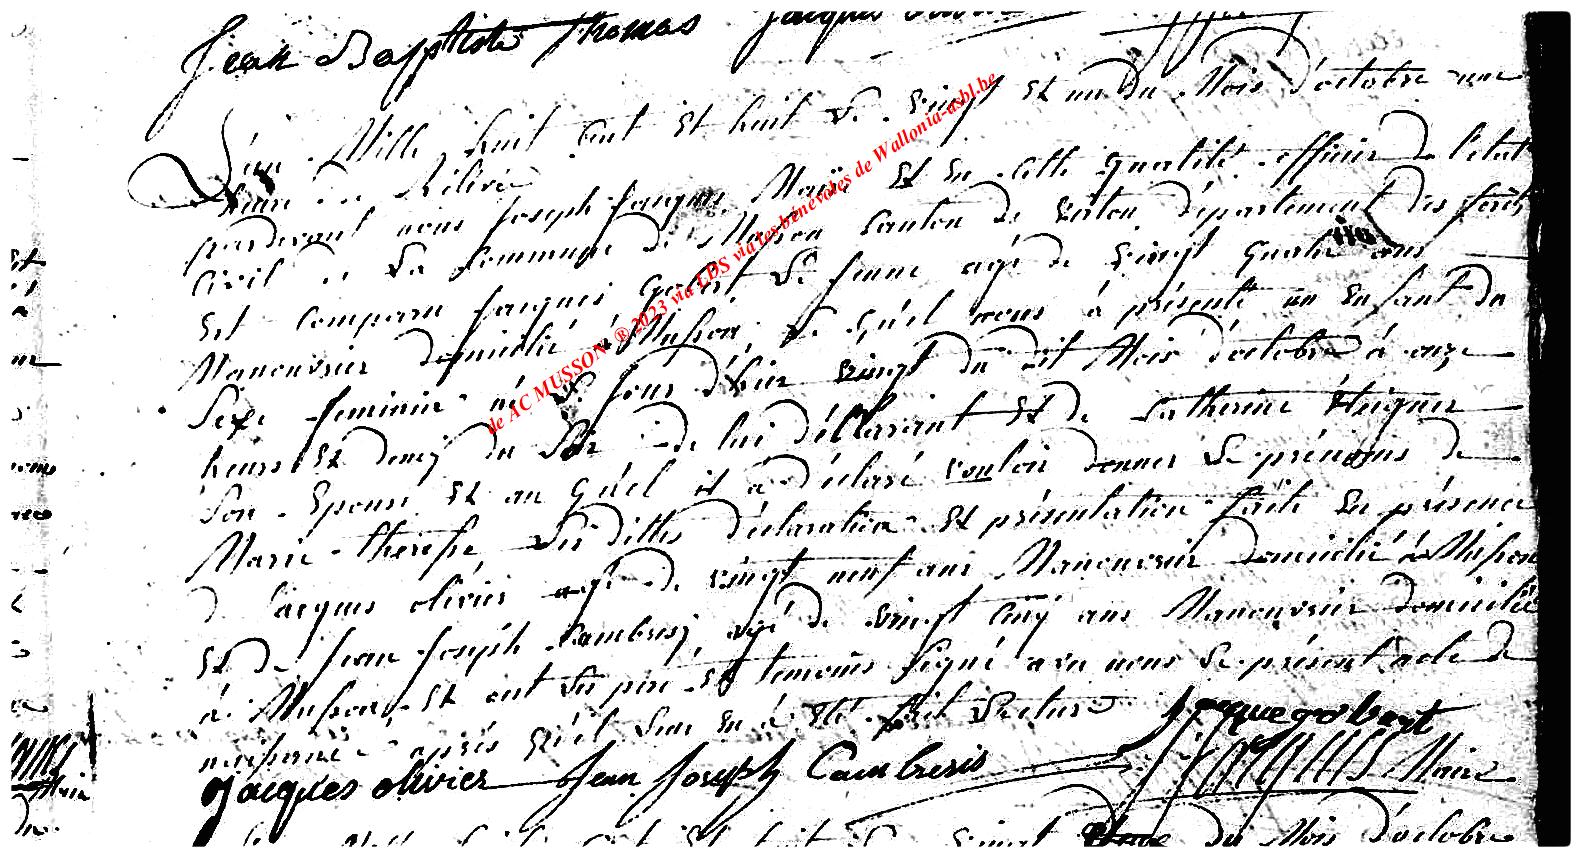 Jean Baptiste Thomas Jacques
L'an Mille huit Cent Et huit Le vingt Et un du Mois d'octobre une
heure de Relevée
pardevant nous Joseph Jacques Maire Et En Cette qualité officier de l'état
Civil de La Commune de Musson Canton de virton département des forêts
Est Comparu Jacques gobert Le Jeune agé de vingt quatre ans
Manouvrier domicilié à Musson, Le quel nous à présenté un Enfant du
Sexe feminin né Le Jour d'hier vingt du dit Mois d'octobre à onze
heures Et demy du Soir de lui déclarant Et de Catherine
Son Epouse Et au quel il à déclaré vouloir donner Le prénoms de
Marie therese Les dittes déclaration Et présentation faite En présence
de Jacques olivier agé de vingt neuf ans Manouvrier domicilié à Musson
Et de Jean Joseph Cambresy agé de vingt Cinq ans Manouvrier domicilié
à Musson, Et ont Les pere Et temoins Signé avec nous Le présent acte de
naissance après qu'il Leur En à Eté fait Lecture
Jacque gobert
Jacques olivier Jean Joseph Cambresis Maire
du Mois d'octobre
de AC MUSSON ® 2023 via LDS via les bénévoles de Wallonia-asbl.be